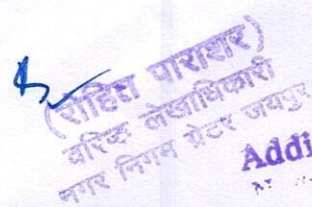 (रोहित पाराशर)
वरिष्ठ लेखाधिकारी
नगर निगम ग्रेटर जयपुर
Addi